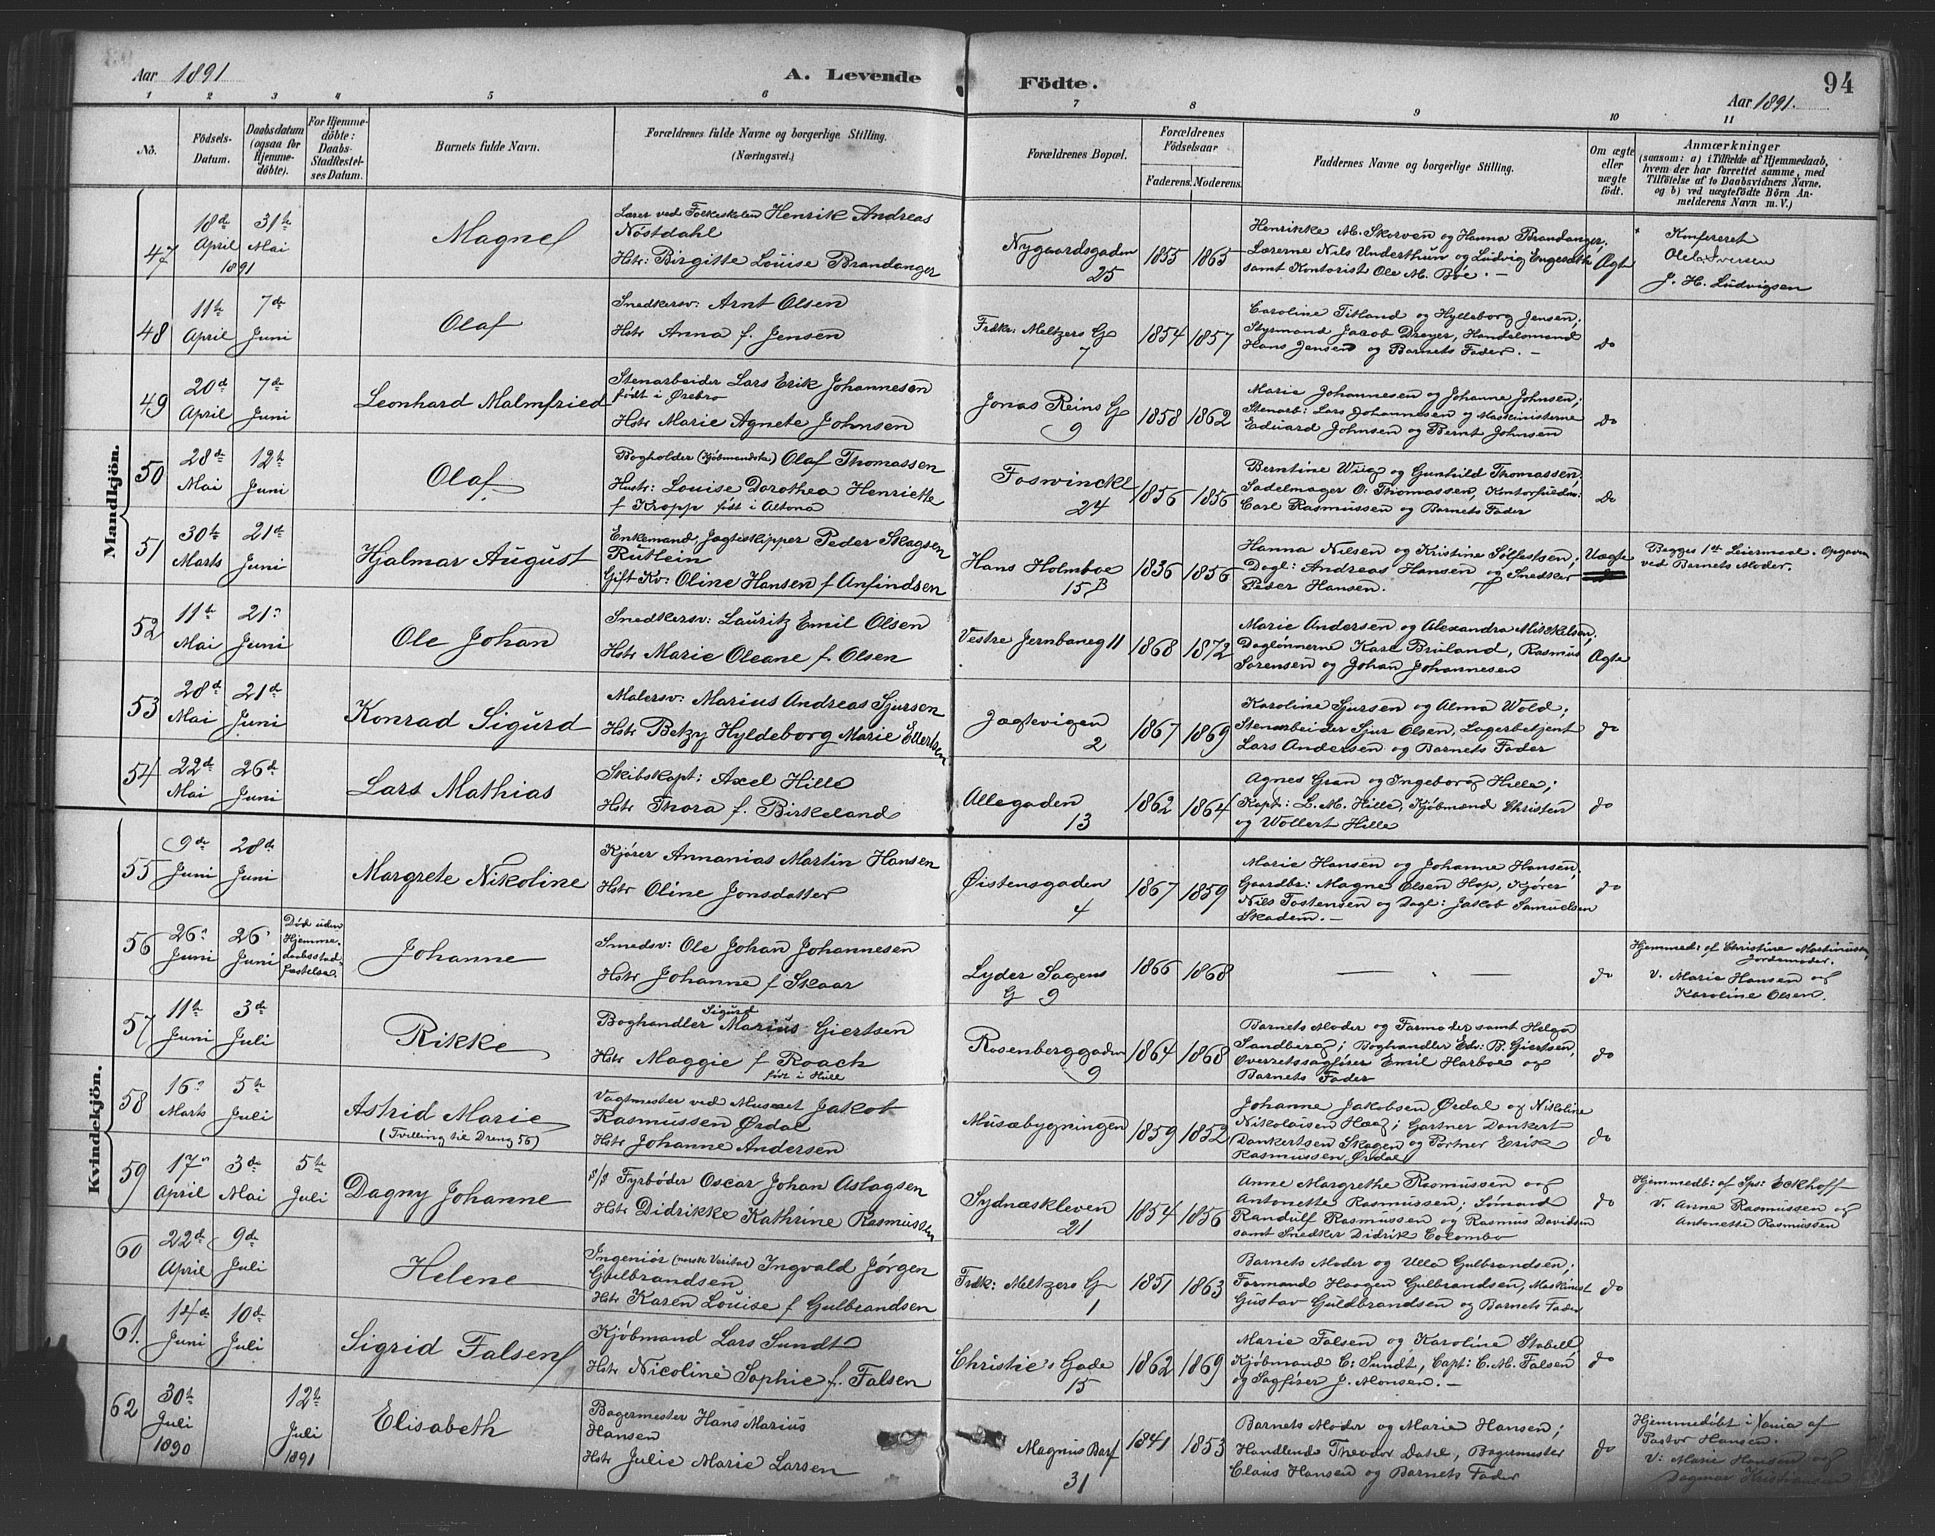 Aar 1891
A. Levende
Födte.
94
Aar 1891.
1 2 3 4 5 6 7 8 9 10 11
No.
Födsels-
Datum.
Daabsdatum
(ogsaa for
Hjemme-
döbte).
For Hjemme-
döbte:
Daabs-
Stadfæstel-
ses Datum.
Barnets fulde Navn.
Forældrenes fulde Navne og borgerlige Stilling.
(Næringsvei.)
Forældrenes Bopæl.
Forældrenes
Födselsaar
Faderens. Moderens.
Faddernes Navne og borgerlige Stilling.
Om ægte
eller
uægte
födt.
Anmærkninger
(saasom: a) i Tilfælde af Hjemmedaab,
hvem der har forrettet samme, med
Tilföielse af to Daabsvidners Navne,
og b) ved uægtefödte Börn An-
melderens Navn m. V.)
Mandkjön.
47
18de April 1891
31te Mai
Magne
Lærer ved Folkeskolen Henrik Andreas
Nöstdahl
Hstr: Birgitte Louise Brandanger
Nygaardsgaden
25
1855 1865
Henrikke M. Skorven og Hanna Brandanger;
Lærerne Nils Underthun og Ludvig Engesæth
samt Kontorist Ole M. Böe. —
Ægt
Konfereret
J. H. Ludvigsen
48
11te April
7de Juni
Olaf
Snedkersv: Arnt Olsen
Hstr Anna f. Jensen
Fredr: Meltzers G
7
1854 1857
Caroline Titland og Hylleborg Jensen;
Styrmand Jacob Dreyer, Handelsmand
Hans Jensen og Barnets Fader. —
do
49
20de April
7de Juni
Leonhard Malmfried
Stenarbeider Lars Erik Johannesen
född i Ørebro
Hstr Marie Agnete Johnsen
Jonas Reins G
9
1858 1862
Marie Johannesen og Johanne Johnsen;
Stenarb: Lars Johannesen og Maskinisterne
Eduard Johnsen og Bernt Johnsen
do
50
28de Mai
12te Juni
Olaf
Bogholder (Kjöbmandsk) Olaf Thomassen
Hustr: Louise Dorothea Henriette
f Kropp födt i Altona
Foswinckl
24
1856 1856
Berntine Wiig og Gunhild Thomassen;
Sadelmager O: Thomassen, Kontorfuldm:
Carl Rasmussen og Barnets Fader
Do
51
30te Marts
21de Juni
Hjalmar August
Enkemand, Jagteskipper Peder Skagsen
Rutlein
Gift Kv: Oline Hansen f Anfindsen
Hans Holmboe
15 B
1836 1856
Hanna Nilsen og Kristine Sölfestsen;
Dagl: Andreas Hansen og Snedker
Peder Hansen.
Uægte
Begges 1ste Leiermaal. Opgaven
ved Barnets Moder.
52
11te Mai
21" Juni
Ole Johan
Snedkersv: Lauritz Emil Olsen
Hstr Marie Oleane f. Olsen
Vestre Jernbaneg 11
1868 1872
Marie Andersen og Alexandra Mikkelsen;
Daglönnerne Kase Bruland, Rasmus
Sörensen og Johan Johannesen
Ægte
53
28de Mai
21de Juni
Konrad Sigurd
Malersv: Marius Andreas Sjursen
Hstr Betzy Hyldeborg Marie Ellertsen
Jagtevigen
2
1867 1869
Karoline Sjursen og Alma Wold;
Stenarbeider Sjur Olsen, Lagerbetjent
Lars Andersen og Barnets Fader
do
54
22de Mai
26de Juni
Lars Mathias
Skibskapt: Axel Hille
Hstr Thora f. Birkeland
Allegaden
13
1862 1864
Agnes Gran og Ingeborg Hille;
Kapt: L. M. Hille, Kjöbmænd Christen
og Wollert Hille
do
Kvindekjön.
55
9de Juni
28de Juni
Margrete Nikoline
Kjörer Annanias Martin Hansen
Hstr Oline Jonsdatter
Øistensgaden
4
1867 1859
Marie Hansen og Johanne Hansen;
Gaardbr: Magne Olsen Hop, Kjörer
Nils Tostensen og Dagl: Jakob Samuelsen
Skadem. —
do
56
26" Juni
26" Juni
Död uden
Hjemme-
daabsstad-
fæstelse.
Johanne
Smedsv: Ole Johan Johannesen
Hstr Johanne f Skaar
Lyder Sagens
G 9
1866 1868
— " —
do
Hjemmed: af Christine Martinussen
Jordemoder.
v. Marie Hansen og
Karoline Olsen.
57
11te Juni
3de Juli
Rikke
Sigurd
Boghandler Marius Giertsen
Hstr Maggie f Roach
födt i Hull
Rosenberggaden
9
1864 1868
Barnets Moder og Farmoder samt Helga
Sandberg; Boghandler Edv: B. Giertsen,
Overretssagförer Emil Harboe og
Barnets Fader
do
58
16" Marts
5te Juli
Astrid Marie
(Tvilling til Dreng 56)
Vagtmester ved Museet Jakob
Rasmussen Ørdal
Hstr Johanne Andersen
Musæbygningen
1859 1852
Johanne Jakobsen Ørdal og Nikoline
Nikolaisen Haag; Gartner Dankert
Dankertsen Skagen og Portner Erik
Rasmussen Ørdal
do
59
17" April
3de Mai
5te Juli
Dagny Johanne
s/s Fyrböder Oscar Johan Aslagsen
Hstr Didrikke Kathrine Rasmussen
Sydnæskleven
21
1854 1856
Anne Margrethe Rasmussen og
Antonette Rasmussen; Sömænd
Randulf Rasmussen og Rasmus Davidsen
samt Snedker Didrik Colombo
do
Hjemmedb: af Sps: Eckhoff
v. Anne Rasmussen og
Antonette Rasmussen
60
22de April
9de Juli
Helene
Ingeniör (norsk Veritas) Ingvald Jörgen
Gulbrandsen
Hstr Karen Louise f Gulbrandsen
Fredk: Meltzers G
1
1851 1863
Barnets Moder og Ulla Gulbrandsen;
Formand Haagen Gulbrandsen, Maskinist
Gustav Guldbrandsen og Barnets Fader
do
61.
14de Juni
10de Juli
Sigrid Falsen
Kjöbmand Lars Sundt
Hstr Nicoline Sophie f. Falsen
Christie's Gade
15
1862 1869
Marie Falsen og Karoline Stabell
Kjöbmand C: Sundt, Capt: C. M. Falsen
og Sagförer J. Monsen. —
do
62
30te Juli 1890
12te Juli 1891
Elisabeth
Bagermester Hans Marius
Hansen
Hstr Julie Marie Larsen
Magnus Barf
31
1841 1853
Barnets Moder og Marie Hansen;
Handlende Theodor Dahl, Bagermester
Claus Hansen og Barnets Fader
do
Hjemmedöbt i Xania af
Pastor Hansen.
V: Marie Hansen og
Dagmar Kristiansen